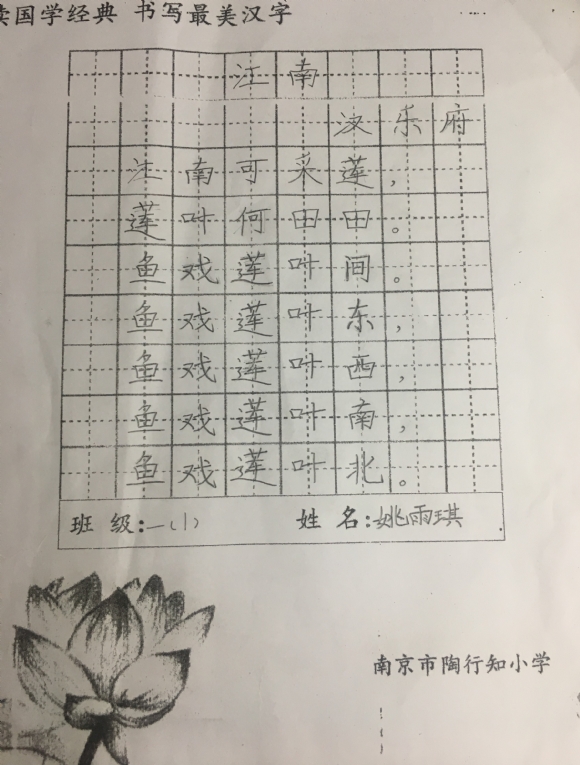 读国学经典 书写最美汉字
江南
汉乐府
江南可采莲，
莲叶何田田。
鱼戏莲叶间。
鱼戏莲叶东，
鱼戏莲叶西，
鱼戏莲叶南，
鱼戏莲叶北。
班级：一（1） 姓名：姚雨琪
南京市陶行知小学